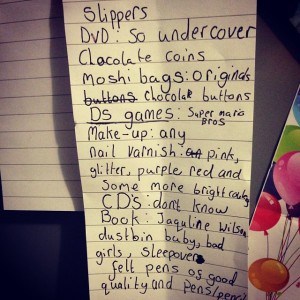 Slippers
DVD: So undercover
Chocolate coins
Moshi bags: originals
buttons Chocolate buttons
DS games: Super mario
Bros
Make-up: any
nail varnish: pink,
glitter, purple red and
Some more bright
CD's: don't know
Book: Jaquline Wilson
dustbin baby, bad
girls, Sleepover
felt pens of good
quality and pens/pencil